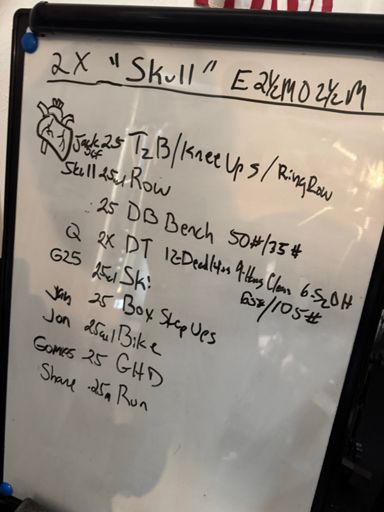 2 X "Skull" E 2½ M O 2½ M
25 T2B/Knee Ups/Ring Row
Skull 25cal Row
25 DB Bench 50#/35#
Q 2X DT 12-Deadlifts 9-Hang Clean 6-S2OH
155#/105#
G25 25cal Ski
Jan 25 Box Step Ups
Jon 25cal Bike
Gomes 25 GHD
Shane .25m Run